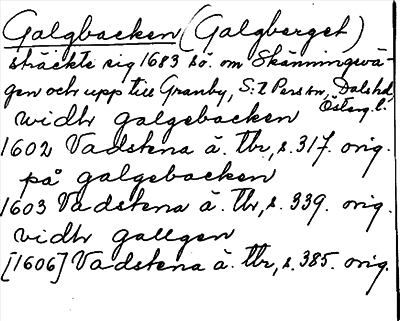 Galgbacken (Galgberget)
sträckte sig 1683 sö. om Skänningevä-
gen och upp till Granby, S:t Pers sn, Dals hd
Österg. l.
widhr galgebacken
1602 Vadstena ä. Tbr, s. 317. orig.
på galgebacken
1603 Vadstena ä. Tbr, s. 339. orig.
vidhr gallgen
[1606] Vadstena ä. Tbr, s. 385. orig.